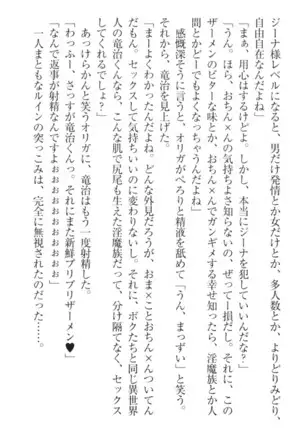 ジーナ様レベルになると、男だけ発情とか女だけとか、多人数とか、よりどりみどり、
自由自在なんだよね」
「まぁ、用心はするけどよ。しかし、本当にジーナを犯していいんだな？」
「うん。ほら、おち×んの気持ちよさ知らないの、ぜってー損だし。それに、
ザーメンのビターな味とか、おち×んでガンギメする幸せ知ったら、淫魔族とか人
間とかどーでもよくなっちゃうんだよね」
感慨深そうに言うと、オリガがぺろりと精液を舐めて「うん、まっずい」と笑う。
それから、竜治を見上げた。
「まーよくわかったんだよね。どんな外見だろうが、おま×ことおちん×んついてん
だもん。セックスして気持ちいいのに変わりないし。それに、ボクたちと同じ異世界
人の竜治くんなら、こんな肌で尻尾も生えた淫魔族だって、分け隔てなく、セックス
あっけらかんと笑うオリガに、竜治はもう一度射精した。
「わっふー、さっすが竜治くんっ。それにまた新鮮プリプリザーメン♥」
「なんで返事が射精なんですよぉぉぉぉぉぉ」
一人まともなルインの突っこみは、完全に無視されたのだった……。